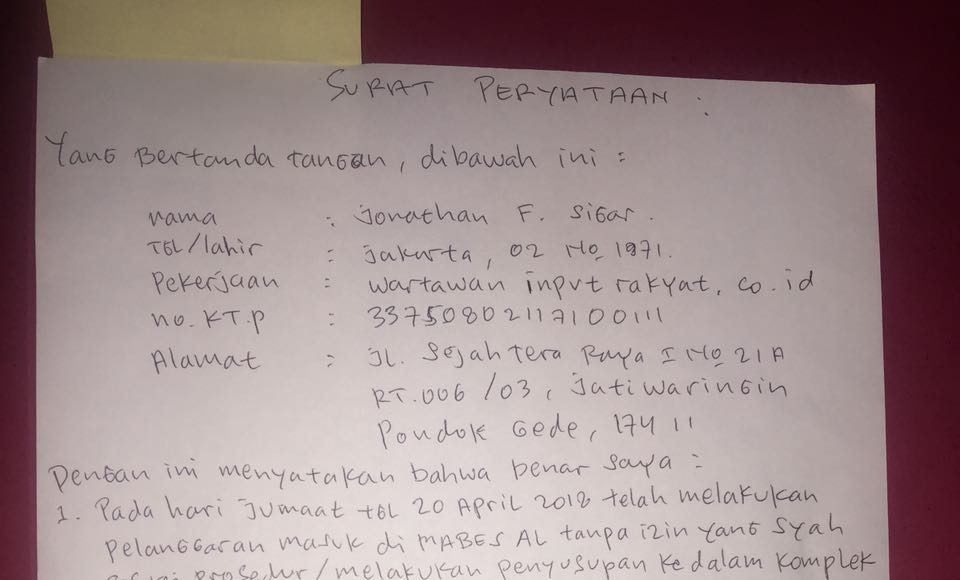 SURAT PERYATAAN .
Yang Bertanda tangan, dibawah ini :
nama : Jonathan F. Sigar.
TGL/lahir : Jakarta, 02 No 1971.
Pekerjaan : wartawan input rakyat. co.id
no. KT.P : 3375080211710011
Alamat : JL. Sejahtera Raya I No 21A
RT.006 /03, Jatiwaringin
Pondok Gede, 17411
Dengan ini menyatakan bahwa benar saya :
1. Pada hari Jumaat tgl 20 April 2018 telah melakukan
Pelanggaran masuk di MABES AL tanpa izin yang syah
prosedur/melakukan penyusupan ke dalam komplek